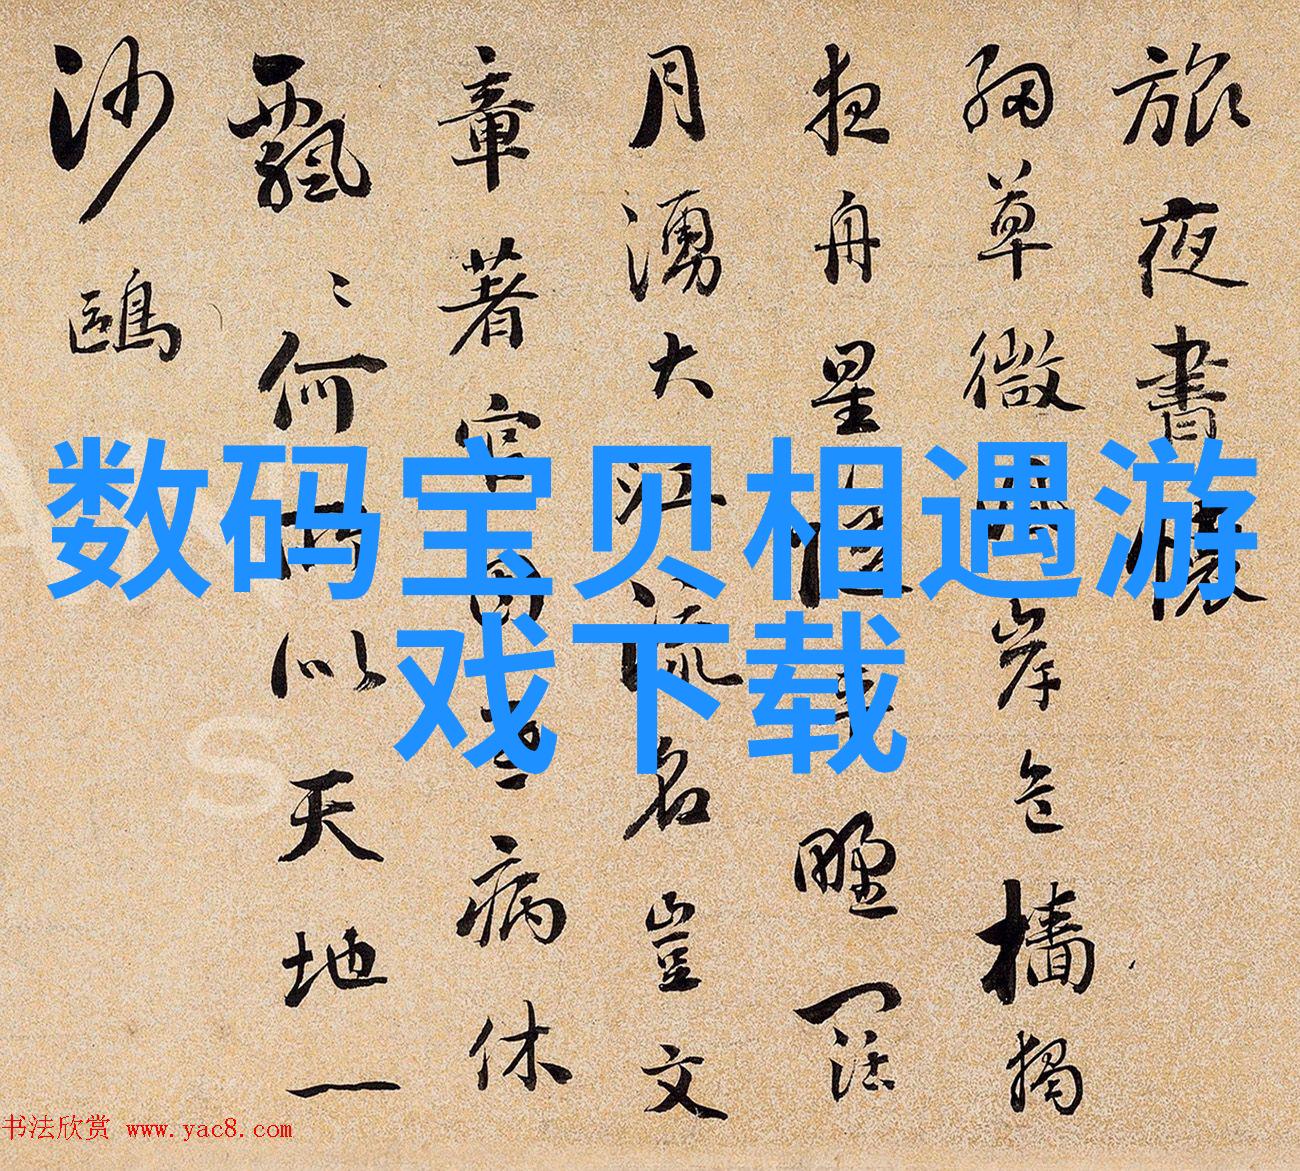 旅夜書懷
細草微風岸危檣獨
夜舟星野闊
月湧大江流名豈文
章著官因老病休
飄〻何所似天地一
沙鷗
数码宝贝相遇游
戏下载
书法欣赏 www.yac8.com